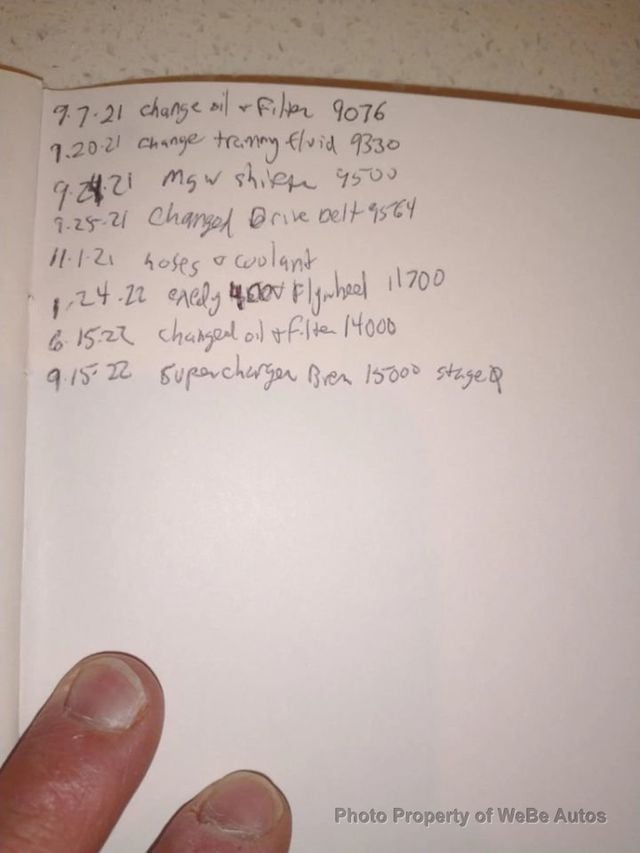 9.7.21 change oil + Filter 9076
9.20.21 change tranny fluid 9330
9.24.21 Mgw shifter 9500
9.25.21 changed Drive belt 9564
11.1.21 hoses & coolant
1.24.22 Flywheel 11700
6.15.22 changed oil + filter 14000
9.15.22 Supercharger 15000 stage
Photo Property of WeBe Autos